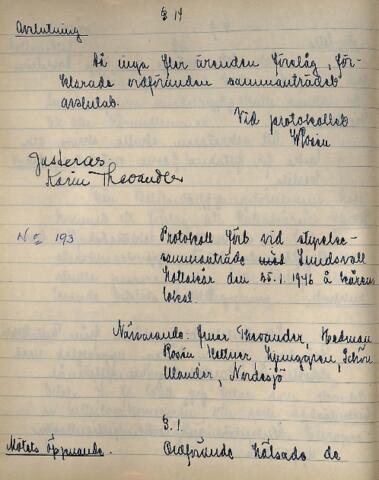 § 14
Avslutning
Då inga fler ärenden förelåg, för-
klarade ordföranden sammanträdet
avslutat.
Vid protokollet
Justeras:
Karin Thevander
N:o 193
Protokoll förb vid styrelse-
sammanträde med Sundsvall
Lottakår den 25.1.1946 å kårens
lokal.
Närvarande. Fruar Thevander, Hedman
Rosén Kettner Ljunggren, Schön
Ulander, Nordesjö
§.1.
Mötets öppnande.
Ordförande hälsade de